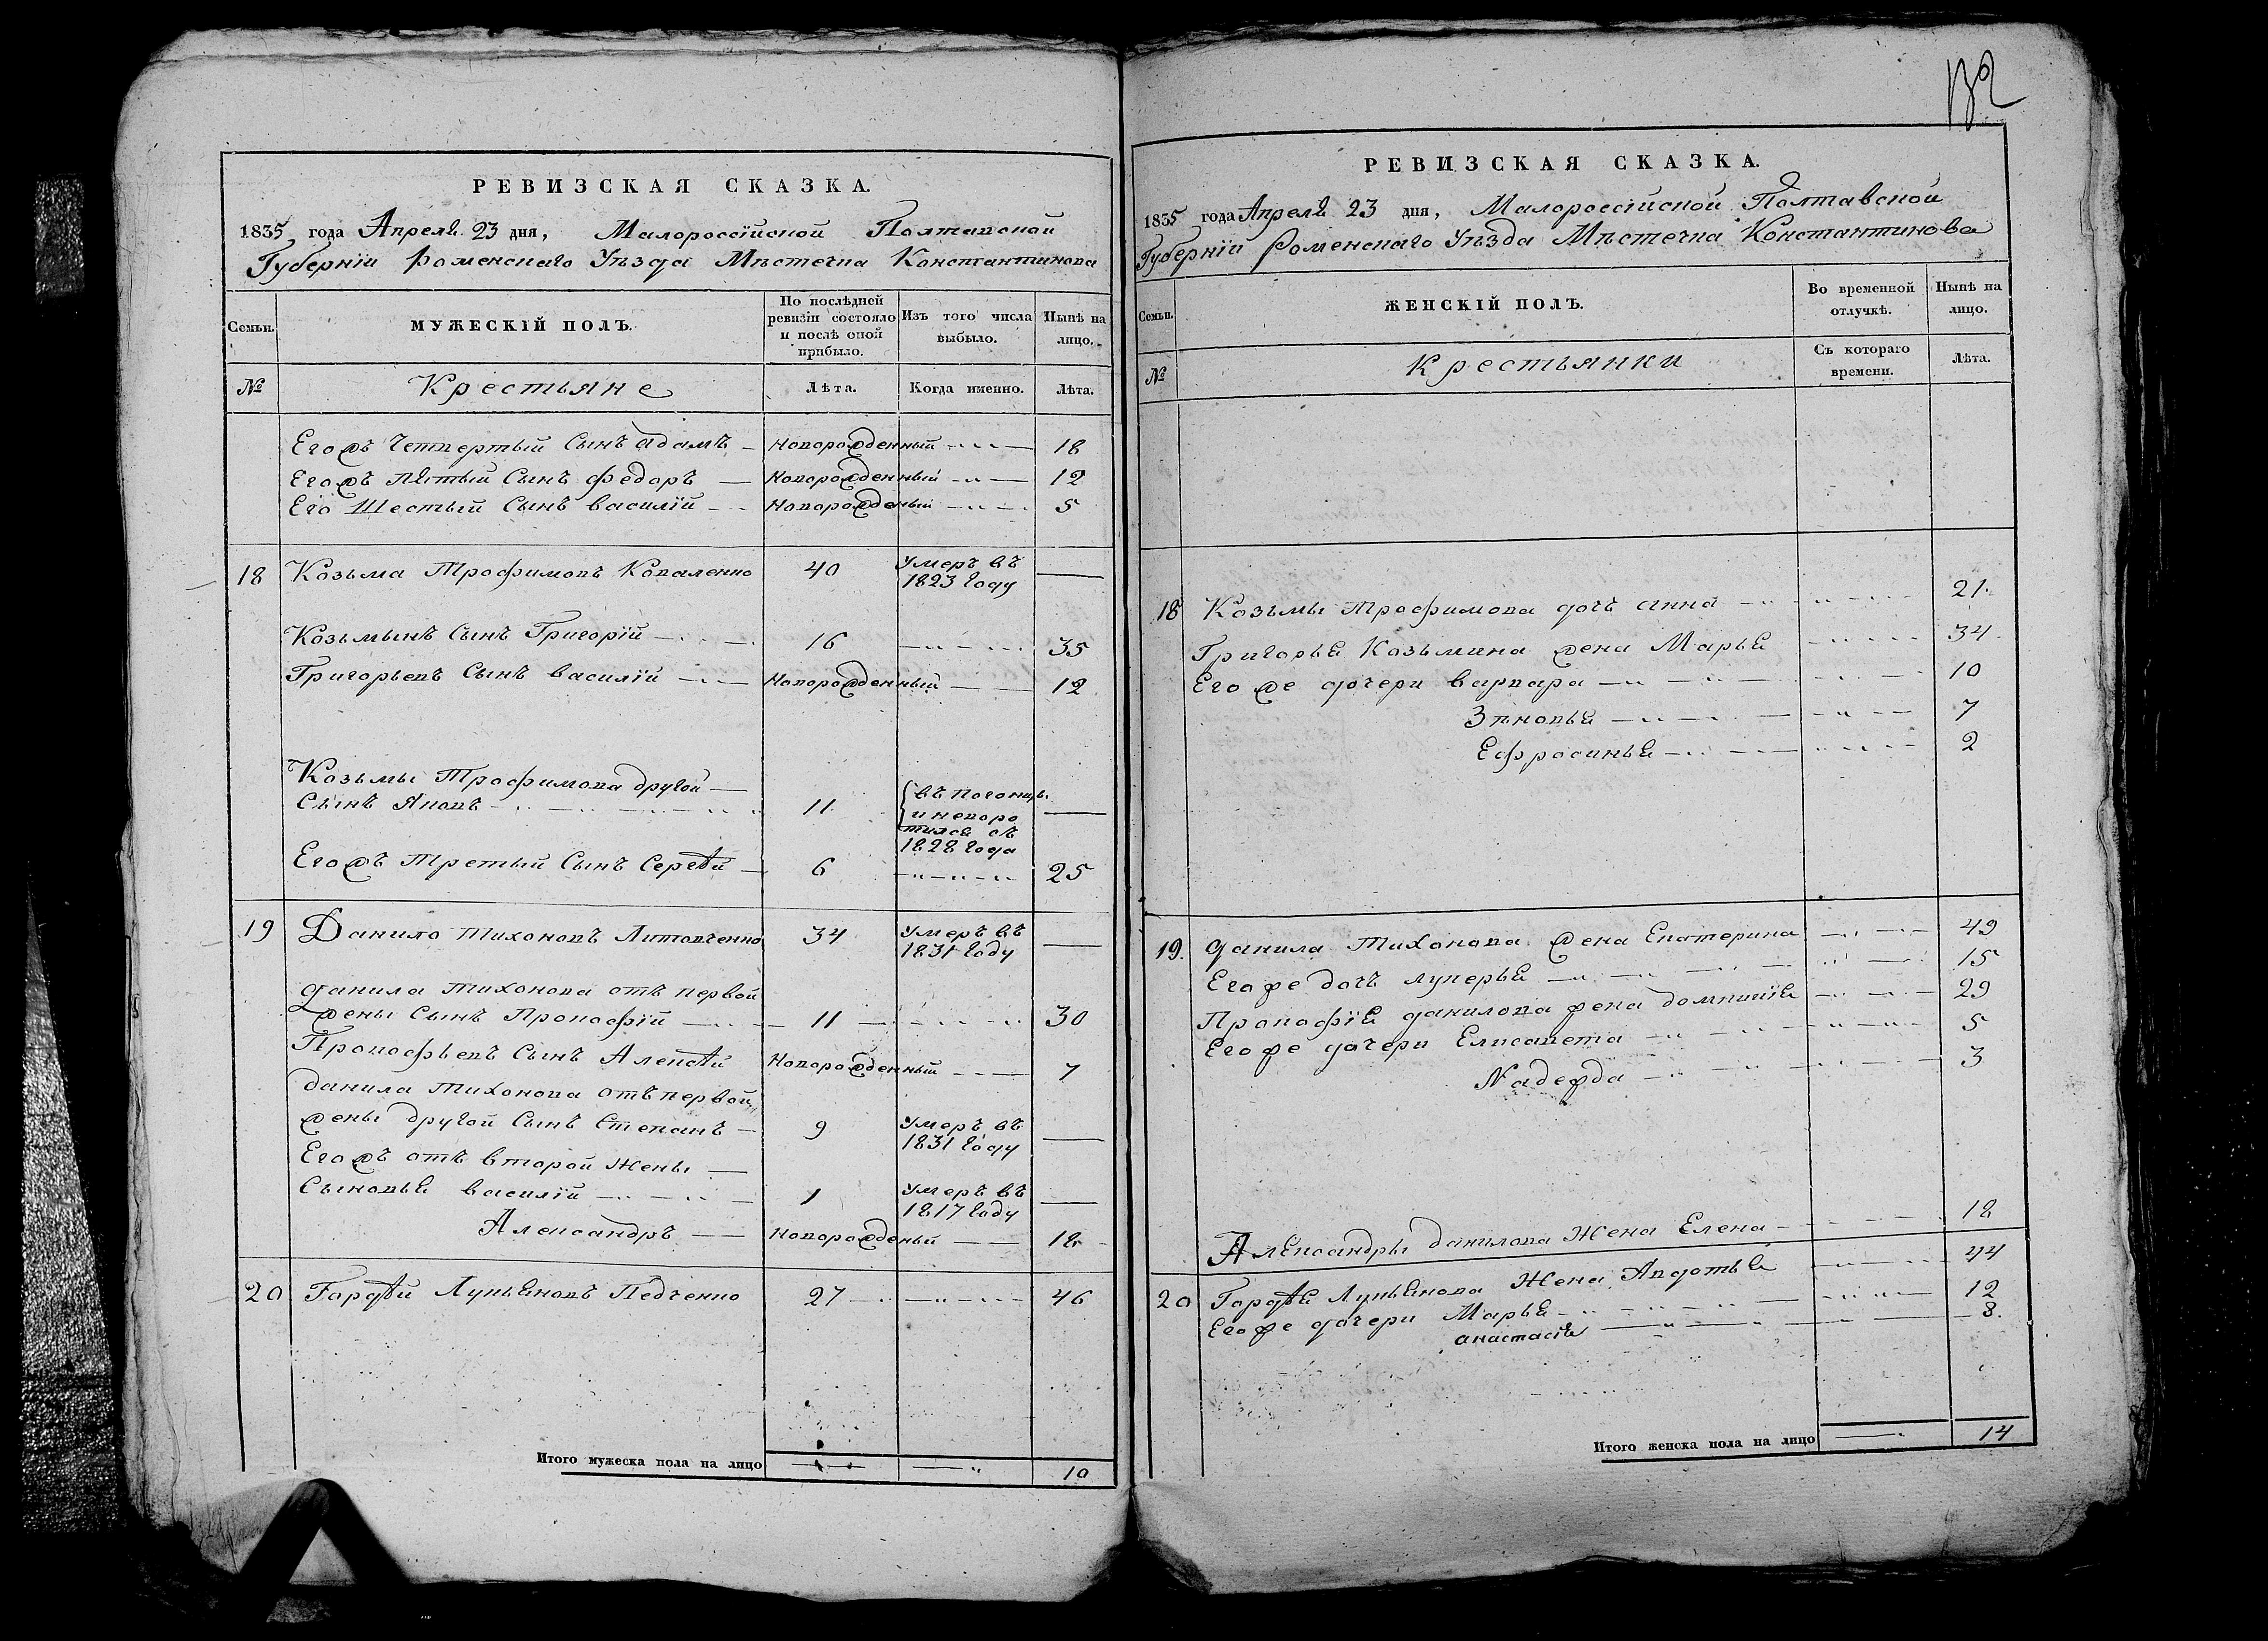 132
РЕВИЗСКАЯ СКАЗКА.
1835 года Апреля 23 дня, Малороссійской Полтавской
Губерніи Роменскаго Уѣзда Мѣстечка Константинова
Семьи. МУЖЕСКІЙ ПОЛЪ. По послѣдней ревизіи состояло и послѣ оной прибыло. Изъ того числа выбыло. Нынѣ на лицо.
№ Крестьяне Лѣта. Когда именно. Лѣта.
Егожъ Четвертый Сынъ адамъ Новорожденный 18
Егожъ пятый Сынъ федоръ Новорожденный 12
Его Шестый Сынъ василій Новорожденый 5
18 Козьма Трофимовъ Коваленко 40 Умеръ въ 1823 году
Козьминъ Сынъ Григорій 16 35
Григорьевъ Сынъ василій Новорожденный 12
Козьмы Трофимова другой
Сынъ Яковъ 11 въ погонцы
и неворо
тился съ
1828 года
Егожъ Третый Сынъ Сергѣй 6 25
19 Данило Тихоновъ Литовченко 34 Умеръ въ 1831 году
данила Тихонова отъ первой
жены Сынъ Прокофій 11 30
Прокофьевъ Сынъ Алексѣй Новорожденный 7
данила Тихонова отъ первой
жены другой Сынъ Степанъ 9 Умеръ въ 1831 году
Егожъ отъ второй Жены
Сыновья василій 1 Умеръ въ 1817 году
Александръ Новорожденый 18
20 Гордѣй Лукьяновъ Педченко 27 46
Итого мужеска пола на лицо 10
РЕВИЗСКАЯ СКАЗКА.
1835 года Апреля 23 дня, Малороссійской Полтавской
Губерніи Роменскаго Уѣзда Мѣстечка Константинова
Семьи. ЖЕНСКІЙ ПОЛЪ. Во временной отлучкѣ. Нынѣ на лицо.
№ Крестьянки Съ котораго времени. Лѣта.
18 Козьмы Трофимова дочь анна 21
Григорья Козьмина жена Марья 34
Его же дочери варвара 10
Зѣновья 7
Ефросинья 2
19. данила Тихонова жена Екатерина 49
Егоже дочь лукерья 15
Прокофія данилова жена домникія 29
Егоже дочери Елисавета 5
Nадежда 3
Александры данилова Жена Елена 18
20 Гордѣя Лукьянова Жена Авдотья 44
Егоже дочери Марья 12
анастасія 8.
Итого женска пола на лицо 14